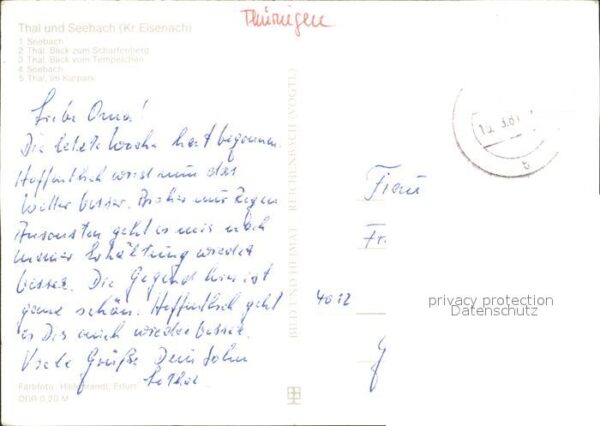 Thüringen
Thal und Seebach (Kr Eisenach)
1 Seebach
2 Thal, Blick zum Scharfenberg
3 Thal, Blick vom Tempelchen
4 Seebach
5 Thal, im Kurpark
Liebe Oma!
Die letzte Woche hat begonnen.
Hoffentlich wird nun das
Wetter besser. Bisher nur Regen
Ansonsten geht es mir nach
meiner Erkältung wieder
besser. Die Gegend hier ist
ganz schön. Hoffentlich geht
es Dir auch wieder besser.
Viele Grüße Dein
Lothar
Farbfoto: Hildebrandt, Erfurt
DDR 0,20 M
BILD UND HEIMAT REICHENBACH (VOGTL)
Frau
Fr.
privacy protection
Datenschutz